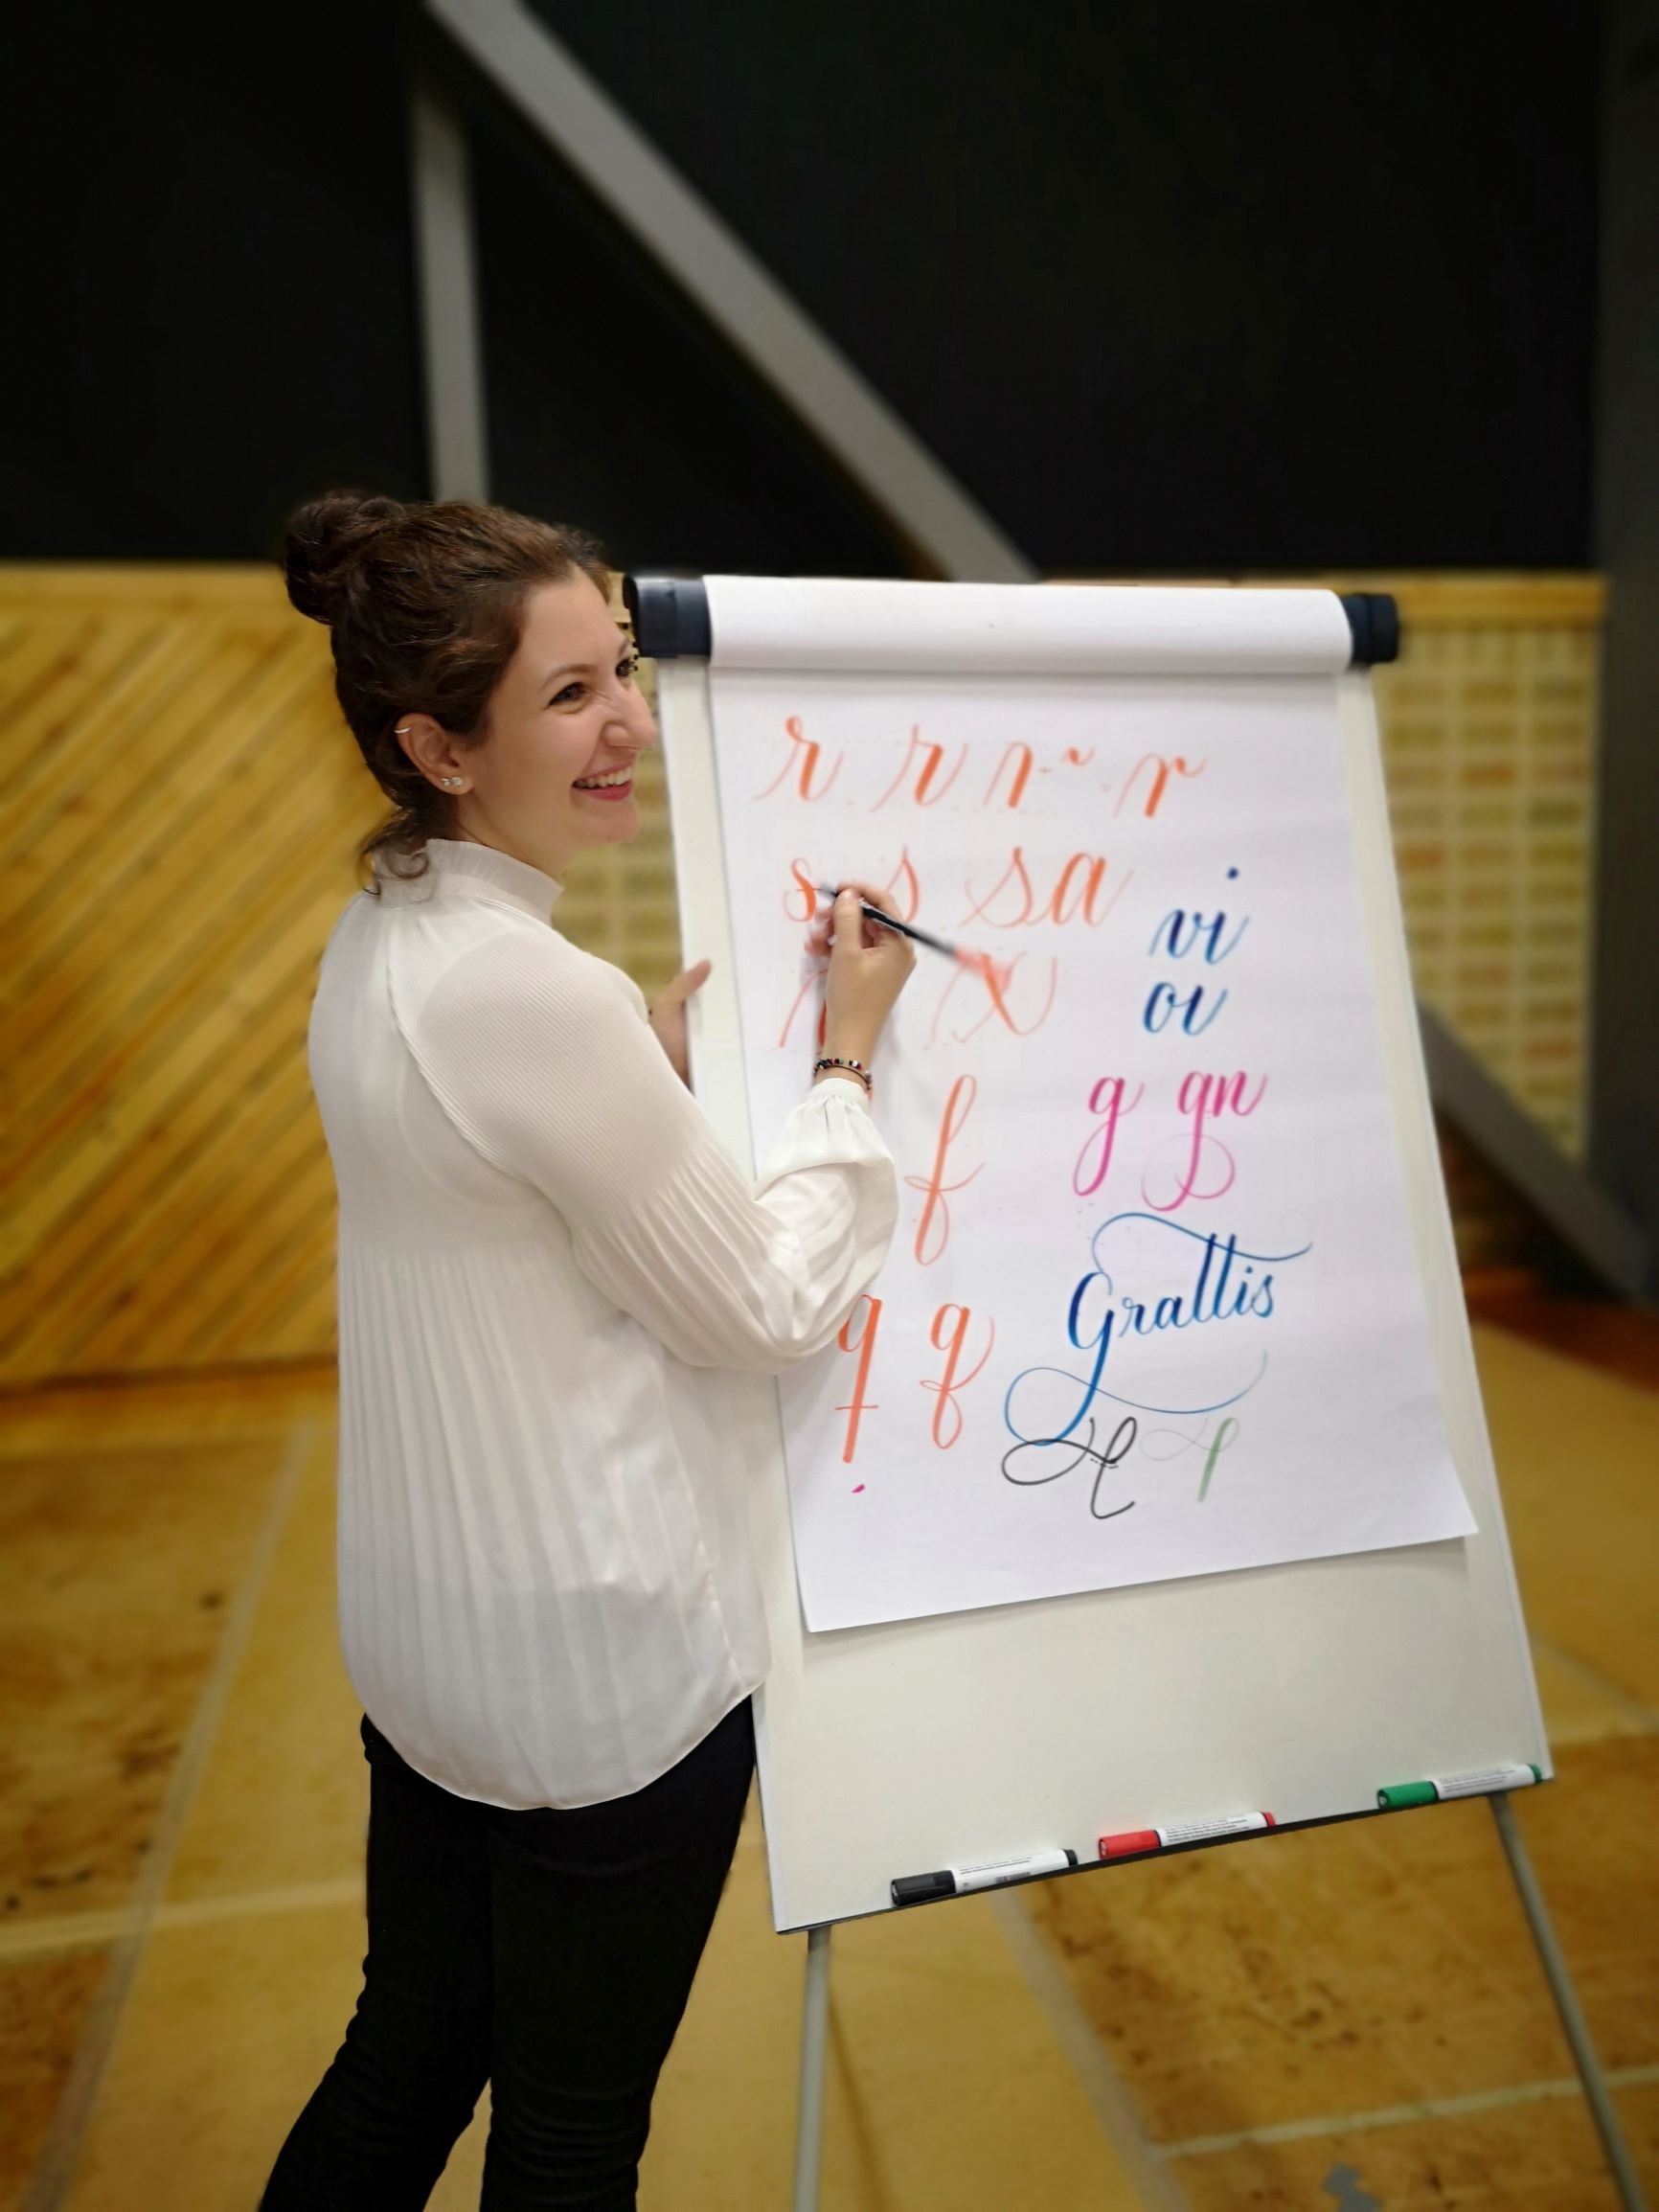 r r r r
s s sa
x
vi
ov
f
g gn
q q
Grattis